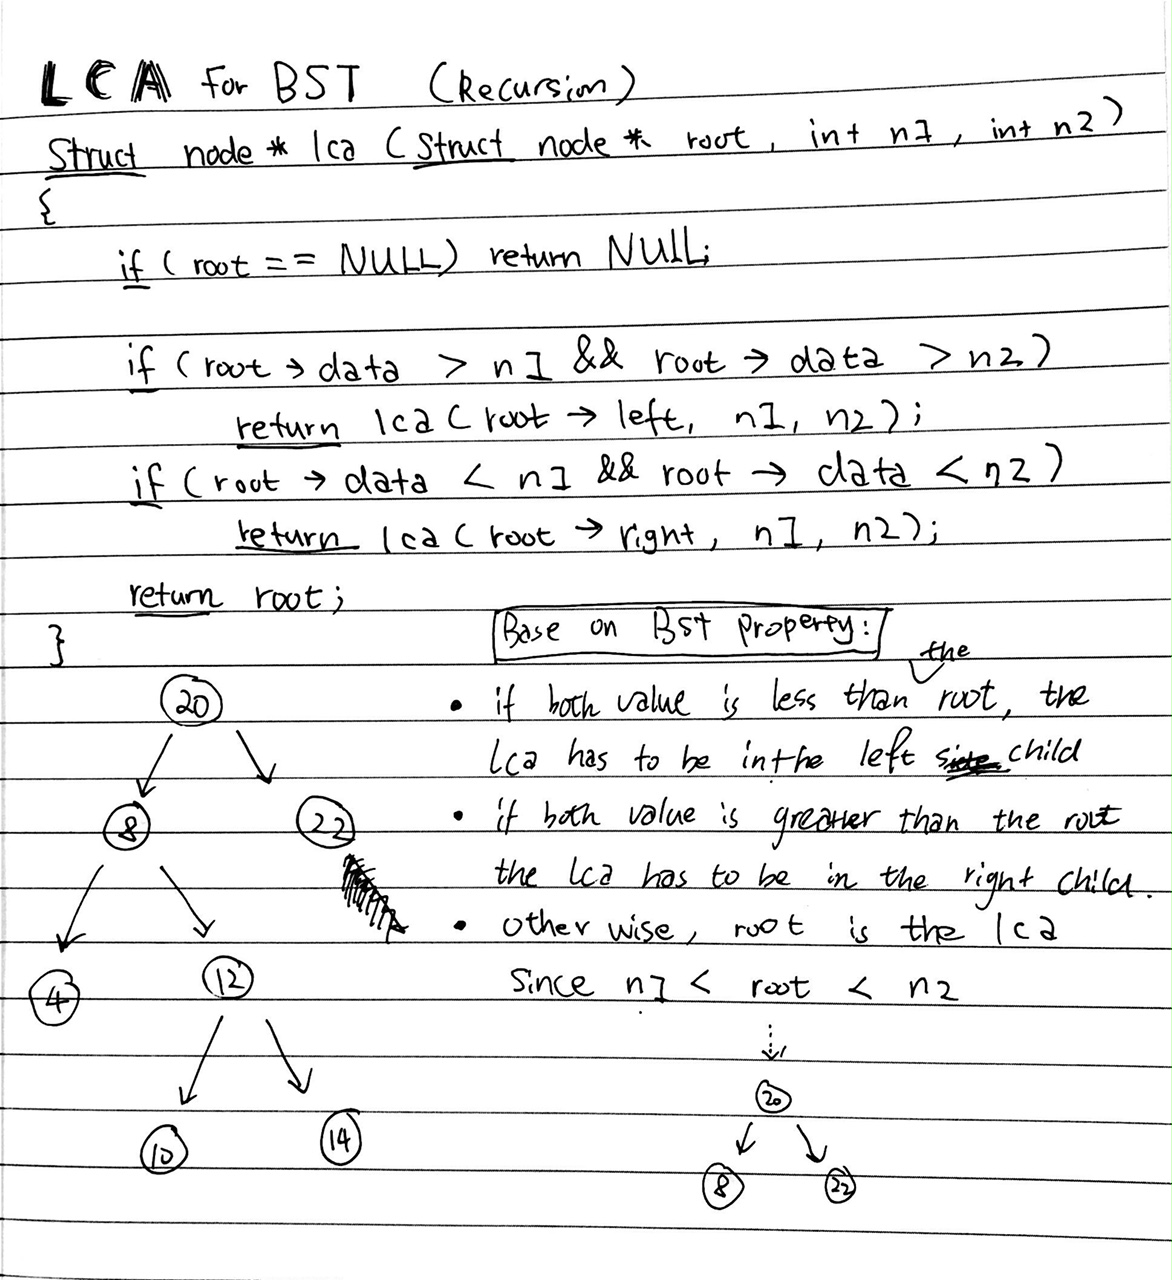 LCA For BST (Recursion)
Struct node * lca (Struct node * root, int n1, int n2)
{
if (root == NULL) return NULL;
if (root → data > n1 && root → data > n2)
return lca (root → left, n1, n2);
if (root → data < n1 && root → data < n2)
return lca (root → right, n1, n2);
return root;
}
Base on BST property:
• if both value is less than the root, the
lca has to be in the left child
• if both value is greater than the root
the lca has to be in the right child.
• other wise, root is the lca
Since n1 < root < n2
20
8 22
4 12
10 14
20
8 22